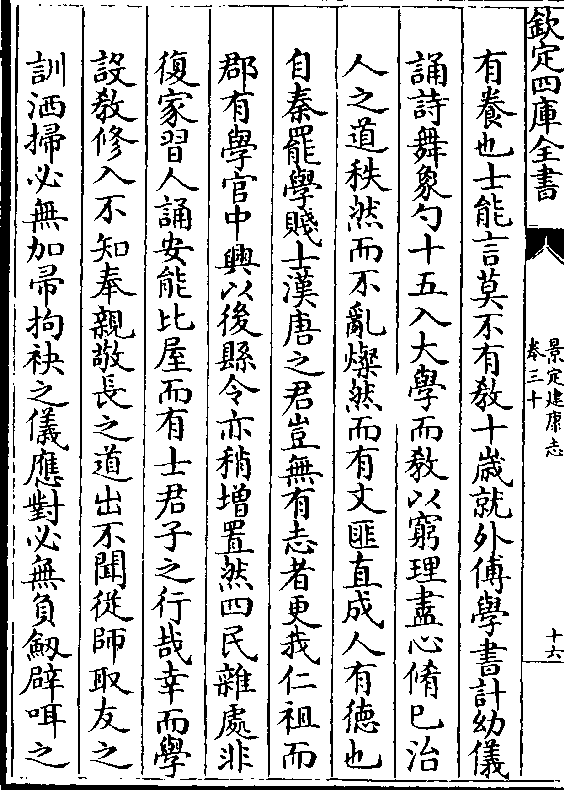 欽定四庫全書
景定建康志
卷三十
十六
有養也士能言莫不有敎十歲就外傅學書計幼儀
誦詩舞象勺十五入大學而敎以窮理盡心脩已治
人之道秩然而不亂燦然而有文匪直成人有德也
自秦罷學賤士漢唐之君豈無有志者更我仁祖而
郡有學官中興以後縣令亦稍增置然四民雜處非
復家習人誦安能比屋而有士君子之行哉幸而學
設敎修入不知奉親敬長之道出不聞從師取友之
訓洒掃必無加帚拘袂之儀應對必無負劒辟咡之